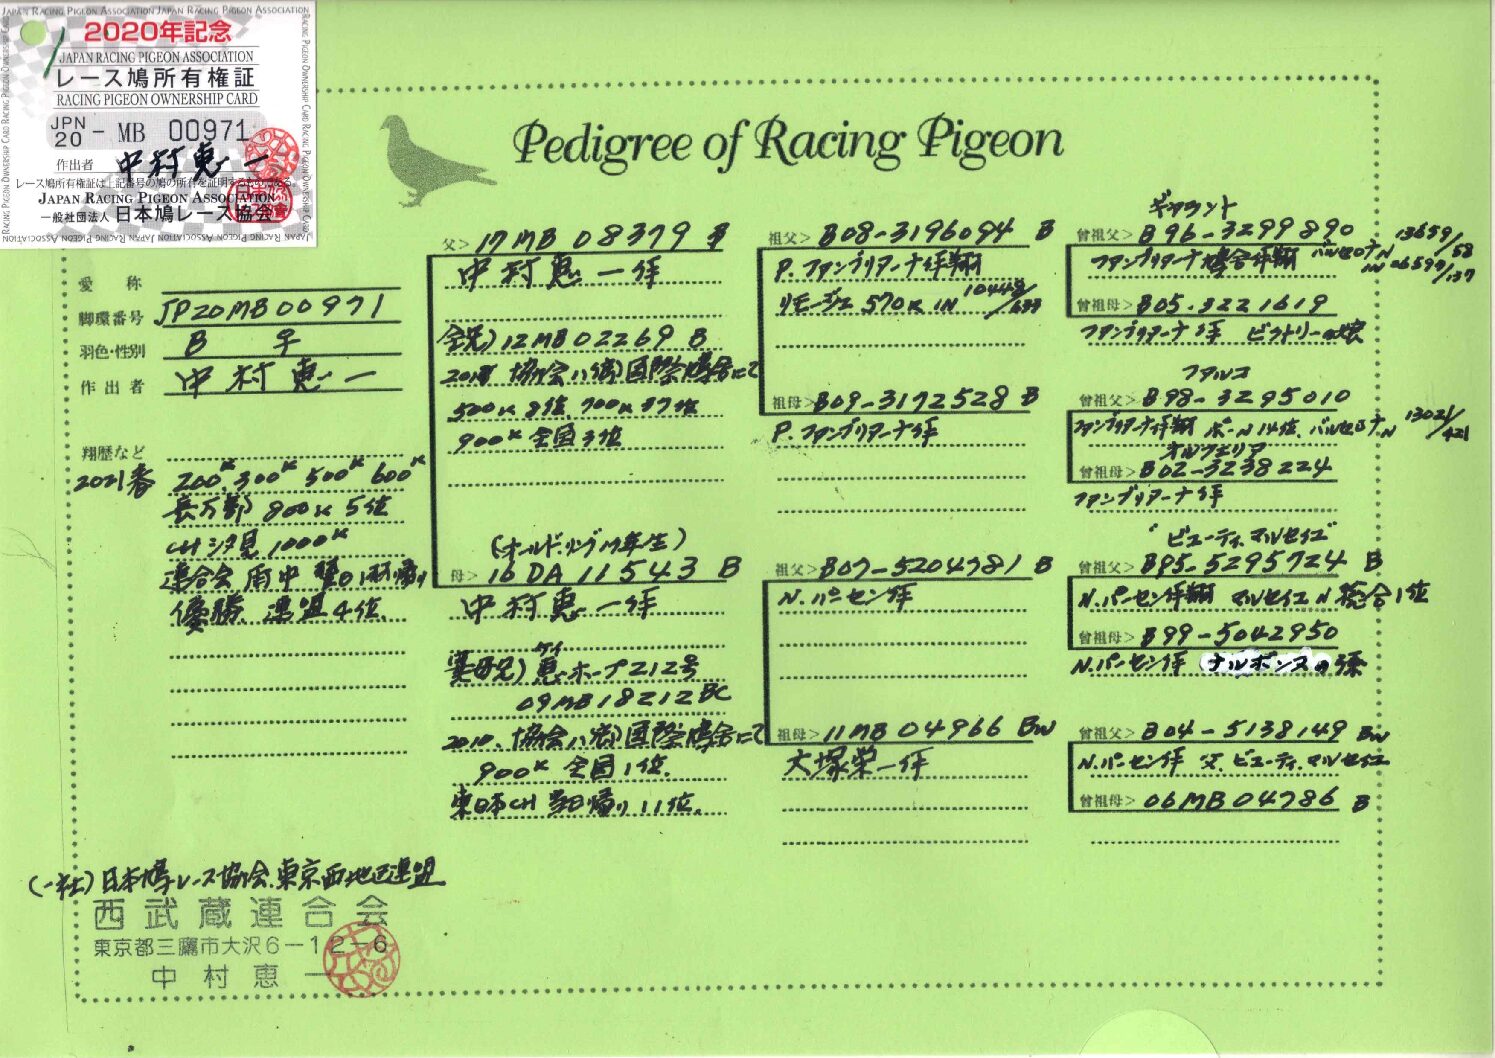 JAPAN RACING PIGEON ASSOCIATION JAPAN RACING PIGEON ASSOCIATION
2020年記念
JAPAN RACING PIGEON ASSOCIATION
レース鳩所有権証
RACING PIGEON OWNERSHIP CARD
JPN 20 - MB 00971
作出者 中村惠一
レース鳩所有権証は上記番号の鳩の所有を証明するものである。
JAPAN RACING PIGEON ASSOCIATION
一般社団法人 日本鳩レース協会
Pedigree of Racing Pigeon
愛称
脚環番号 JP20MB00971
羽色・性別 B ♀
作出者 中村惠一
翔歴など
2021春 200K 300K 500K 600K
長万部 800K 5位
CH汐見 1000K
連合会 雨中 翌日1羽帰り
優勝、連盟4位、
父> 17MB 08379 B
中村惠一作
全兄) 12MB02269 B
協会八郷国際鳩舎にて
500K 8位、700K 37位
900K 全国3位
(オールド、リング17年生)
母> 16DA11543 B
中村惠一作
異母兄) 惠ホープ212号
ケイ
09MB18212BC
2010、協会八郷国際鳩舎にて
900K 全国1位、
東日本CH 当日帰り 11位、
祖父> B08-3196094 B
P.ファンブリアーナ作翔
リモージュ 570K IN 10448/633
祖母> B09-3172528 B
P.ファンブリアーナ作
祖父> B07-5204781 B
N.パーセン作
祖母> 11MB04966 BW
大塚栄一作
ギャラント
曾祖父> B96-3299890
ファンブリアーナ鳩舎作翔 バルセロナN 13659/58
IN
曾祖母> B05-3221619
ファンブリアーナ作 ビクトリーの娘
ファルコ
曾祖父> B98-3295010
ファンブリアーナ作翔 ポーN14位、バルセロナN 13021/421
オルフェリア
曾祖母> B02-3238224
ファンブリアーナ作
"ビューティ、マルセイユ"
曾祖父> B95-5295724 B
N.パーセン作翔 マルセイユN 総合1位
曾祖母> B99-5042950
N.パーセン作 ナルボンヌの孫
曾祖父> B04-5138149 BW
N.パーセン作 父、ビューティ、マルセイユ
曾祖母> 06MB04786 B
(一社)日本鳩レース協会、東京西地区連盟
西武蔵連合会
東京都三鷹市大沢6-12-6
中村惠一